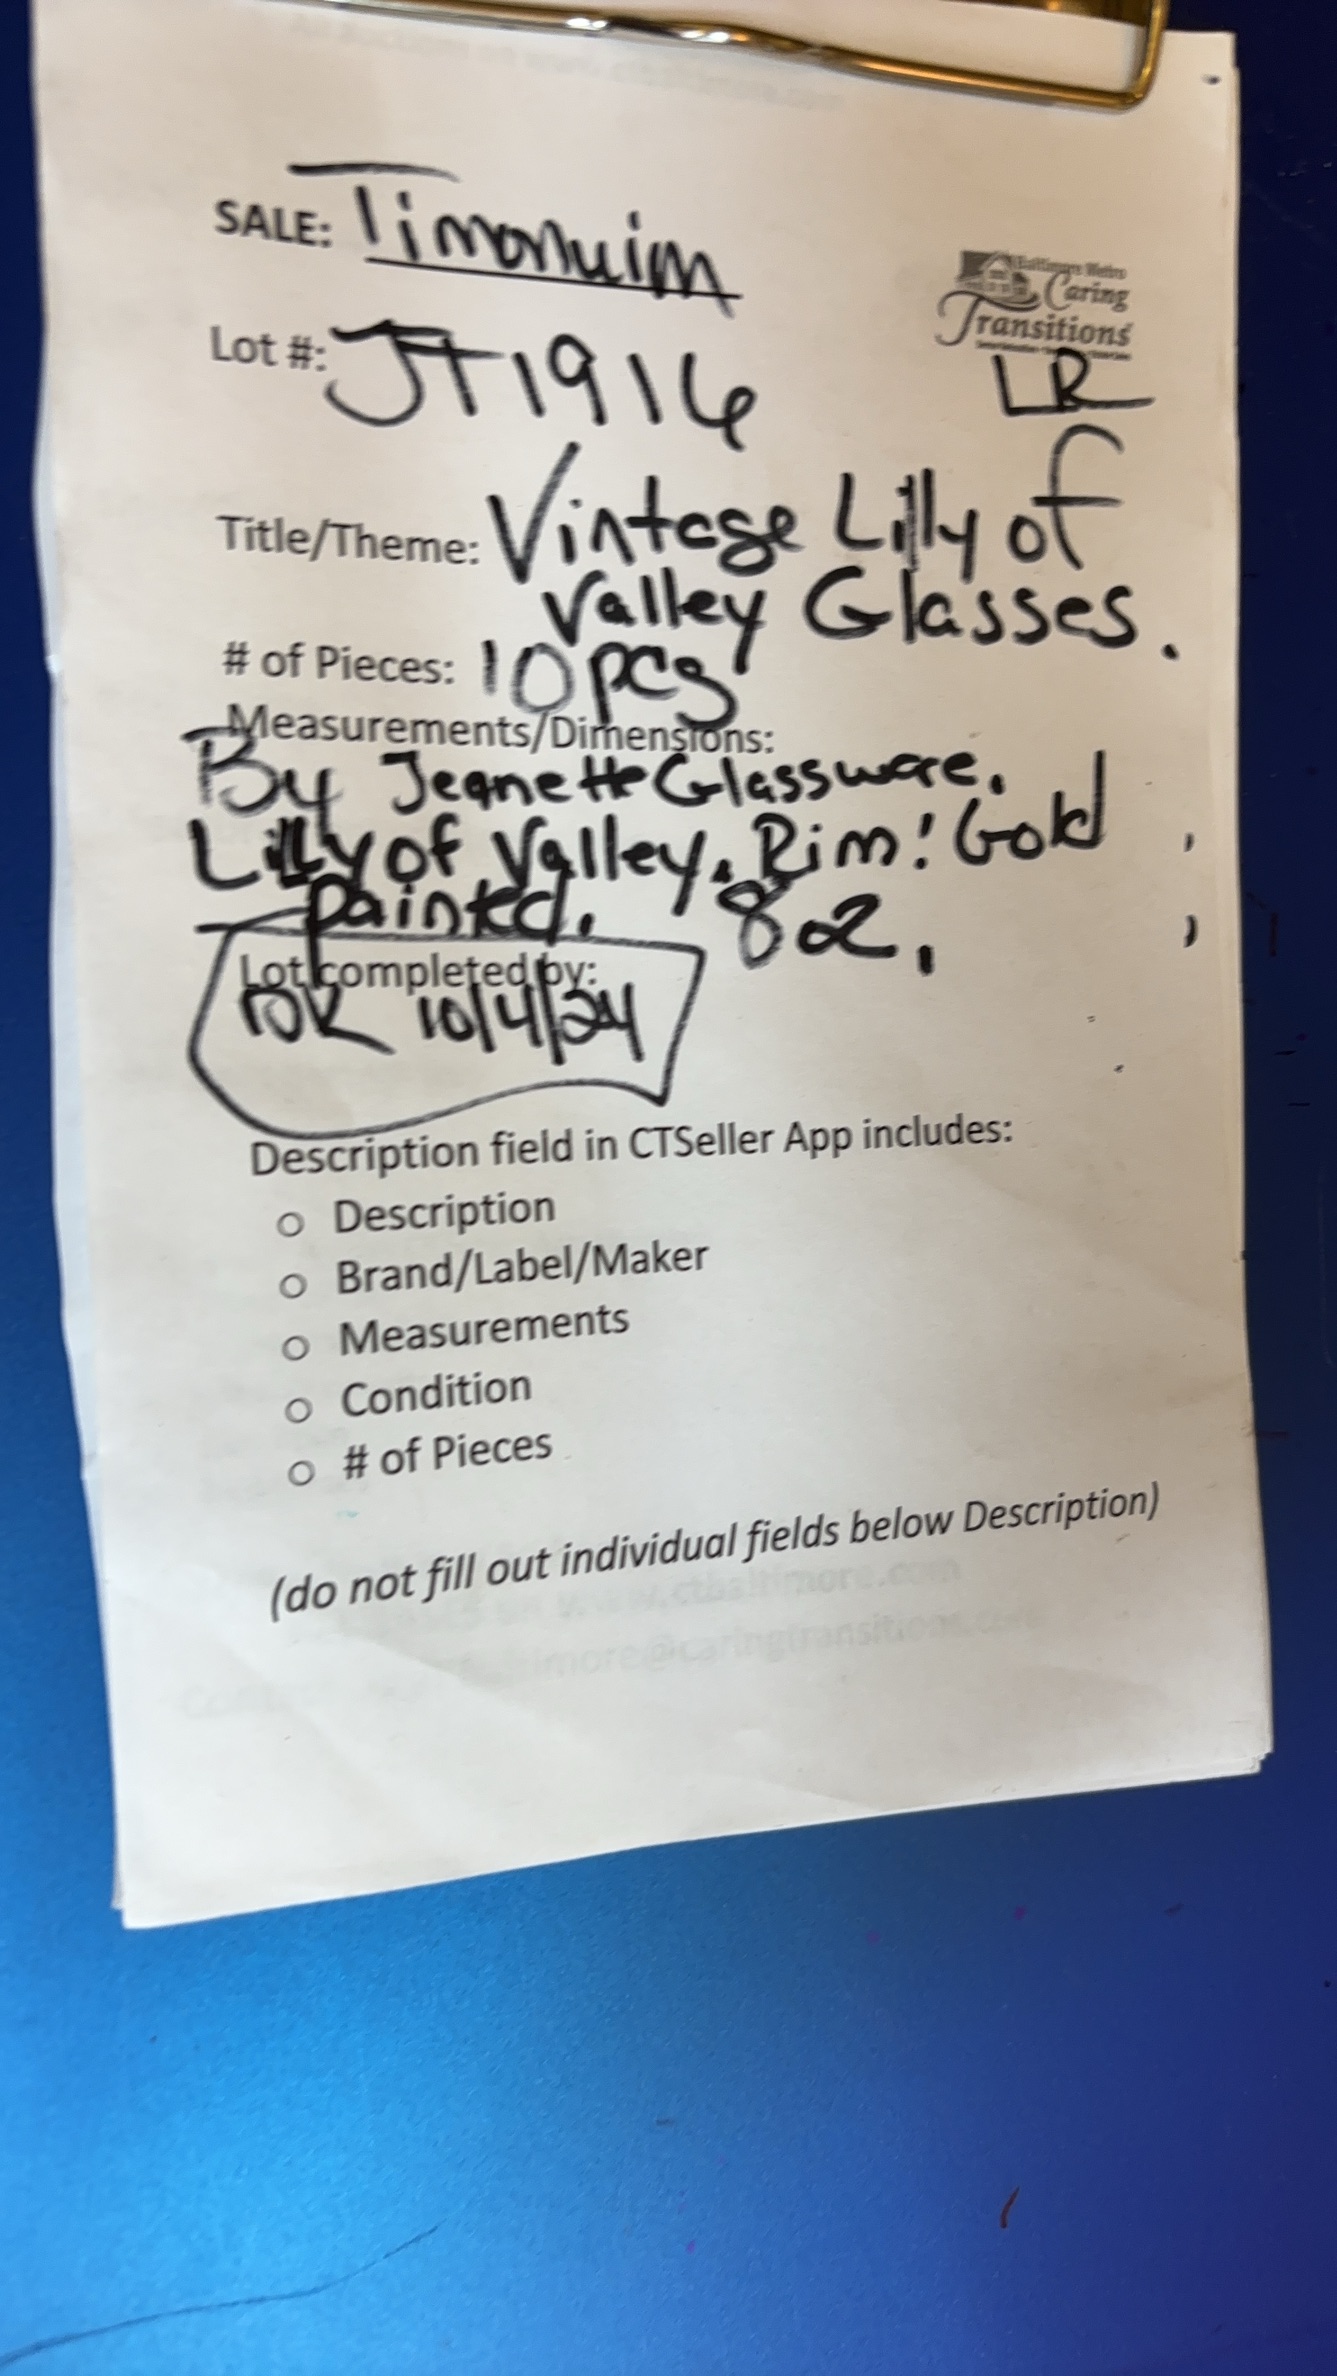 SALE: Timonuim
Baltimore Metro
Caring
Transitions
Lot #: JT1916
LR
Title/Theme: Vintage Lilly of
Valley Glasses.
# of Pieces: 10 pcs
Measurements/Dimensions:
By Jeanette Glassware.
Lilly of Valley. Rim! Gold
painted. 82.
Lot completed by:
10/4/24
Description field in CTSeller App includes:
○ Description
○ Brand/Label/Maker
○ Measurements
○ Condition
○ # of Pieces
(do not fill out individual fields below Description)